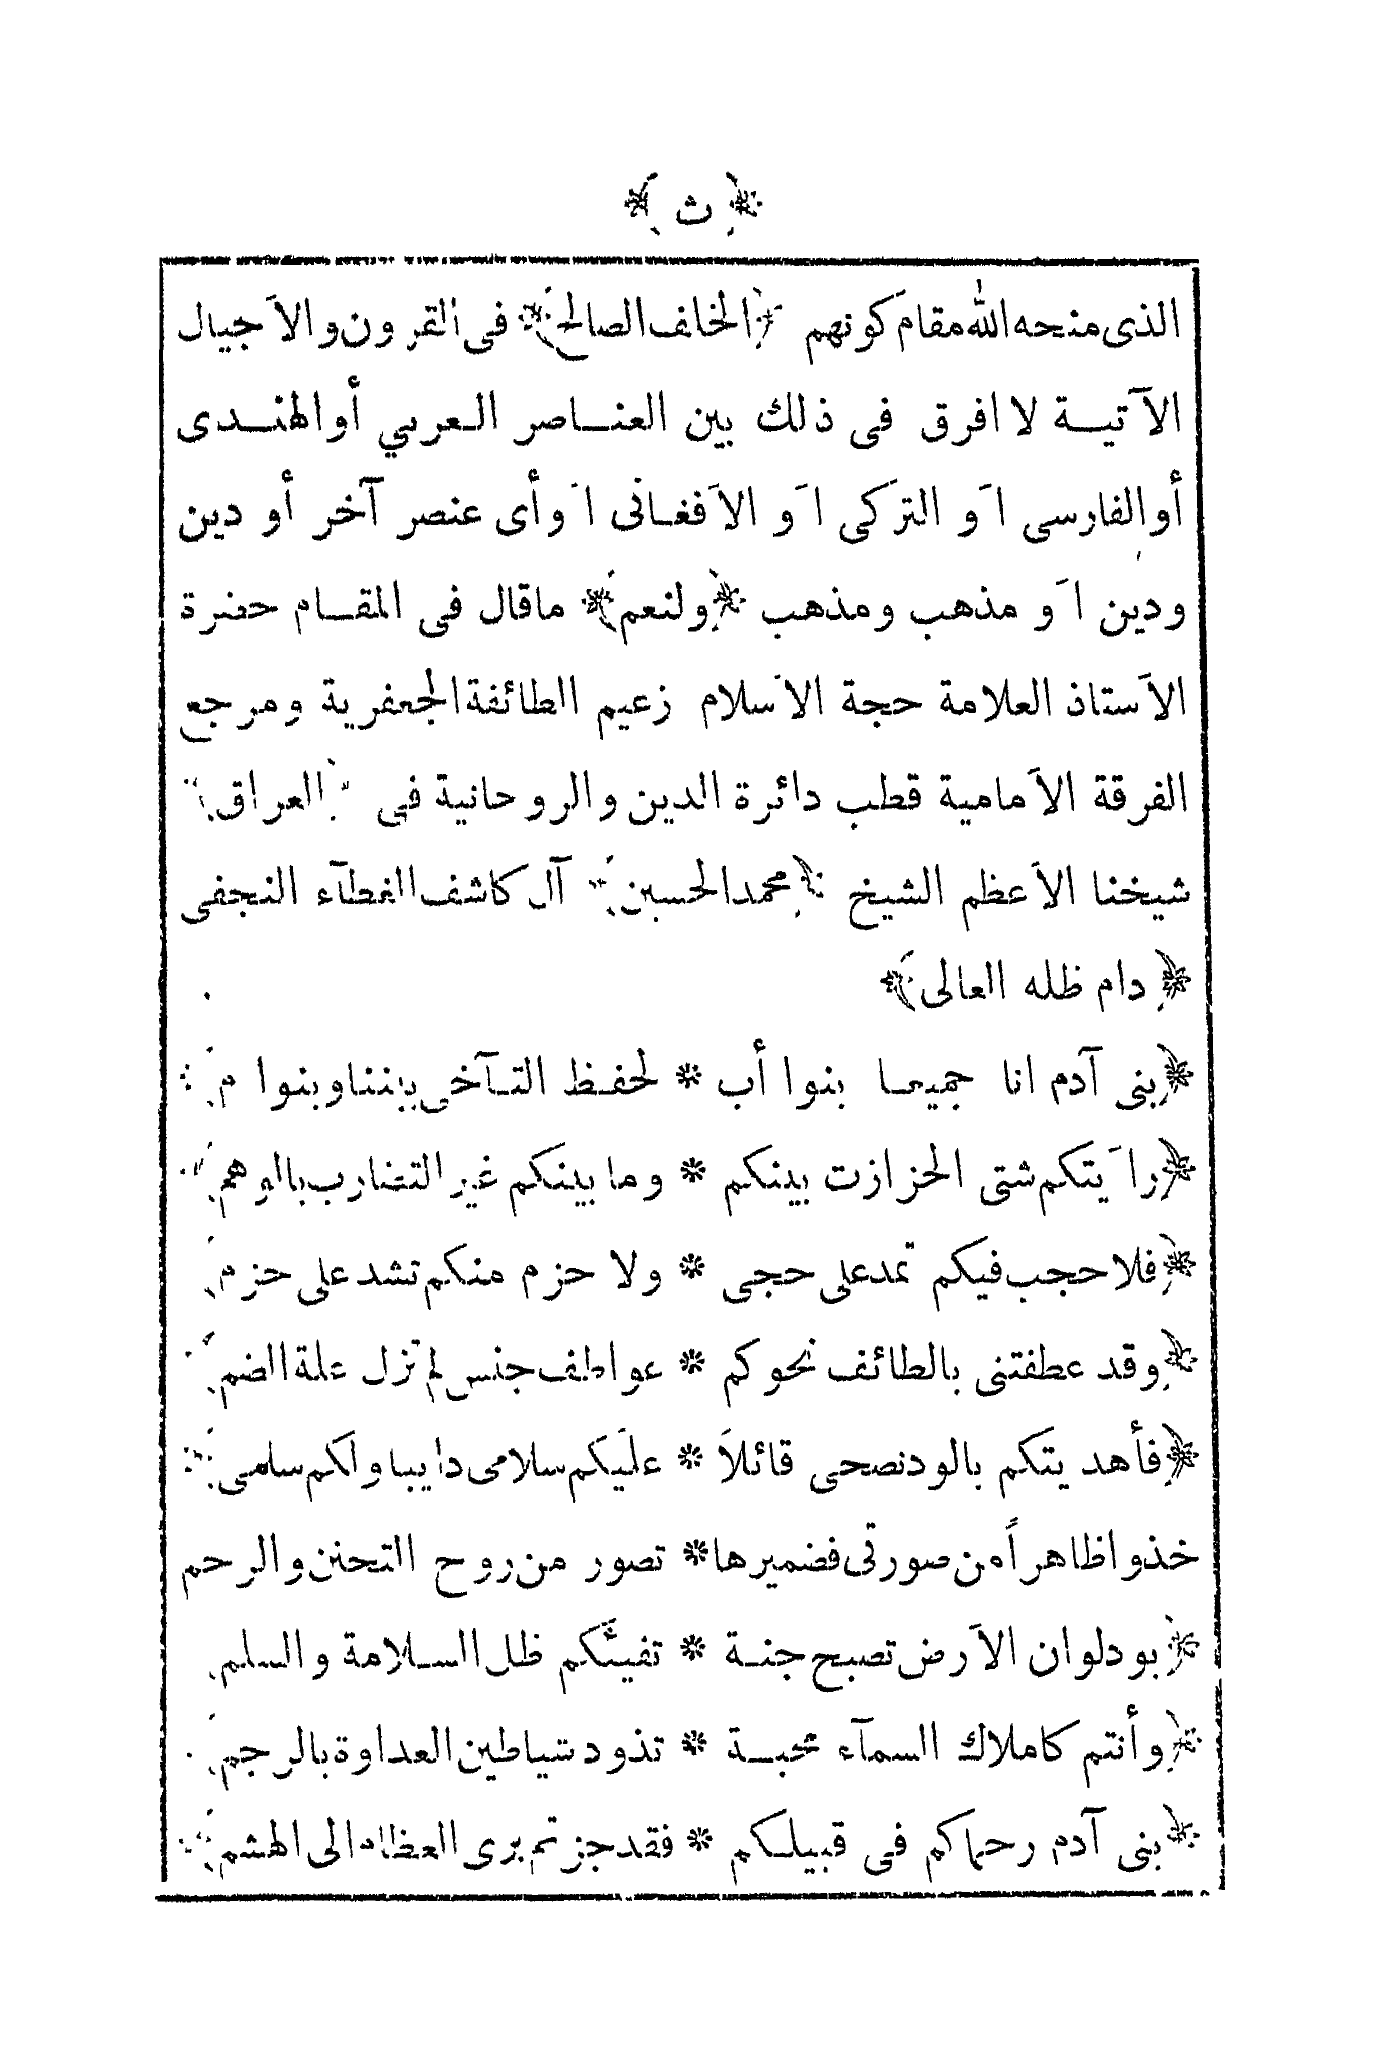 ﴿ ث ﴾
الذى منحه الله مقام كونهم ﴿الخلف الصالح﴾ فى القرون والأجيال
الآتيـة لا افرق فى ذلك بين العنـاصر العربي أوالهنـدى
أوالفارسى أو التركى أو الأفغـانى أوأى عنصر آخر أو دين
ودين أو مذهب ومذهب ﴿ولنعم﴾ ماقال فى المقـام حضرة
الأستاذ العلامة حجة الأسلام زعيم الطائفة الجعفرية ومرجع
الفرقة الأمامية قطب دائرة الدين والروحانية فى ﴿العراق﴾
شيخنا الأعظم الشيخ ﴿محمدالحسين﴾ آل كاشف الغطآء النجفى
﴿دام ظله العالى﴾
﴿بنى آدم انا جميعا بنوا أب * لحفـظ التـآخى بيننا وبنوا م﴾
﴿رأيتكم شتى الحزازت بينكم * وما بينكم غير التضارب بالوهم﴾
﴿فلا حجب فيكم تمدعلى حجى * ولا حزم منكم تشدعلى حزم﴾
﴿وقد عطفتنى بالطائف نحوكم * عواطف جنس لم تزل علة الضم﴾
﴿فأهديتكم بالودنصحى قائلاً * عليكم سلامى دايبا ولكم سلمى﴾
خذوا ظاهراً من صورتى فضميرها * تصور من روح التحنن والرحم
﴿بودلوان الأرض تصبح جنـة * تفيئكم ظل السـلامة والسلم﴾
﴿وأنتم كاملاك السمآء محبـة * تذود شياطين العداوة بالرجم﴾
﴿بنى آدم رحماكم فى قبيلـكم * فقد جزتم برى العظام الى الهشم﴾